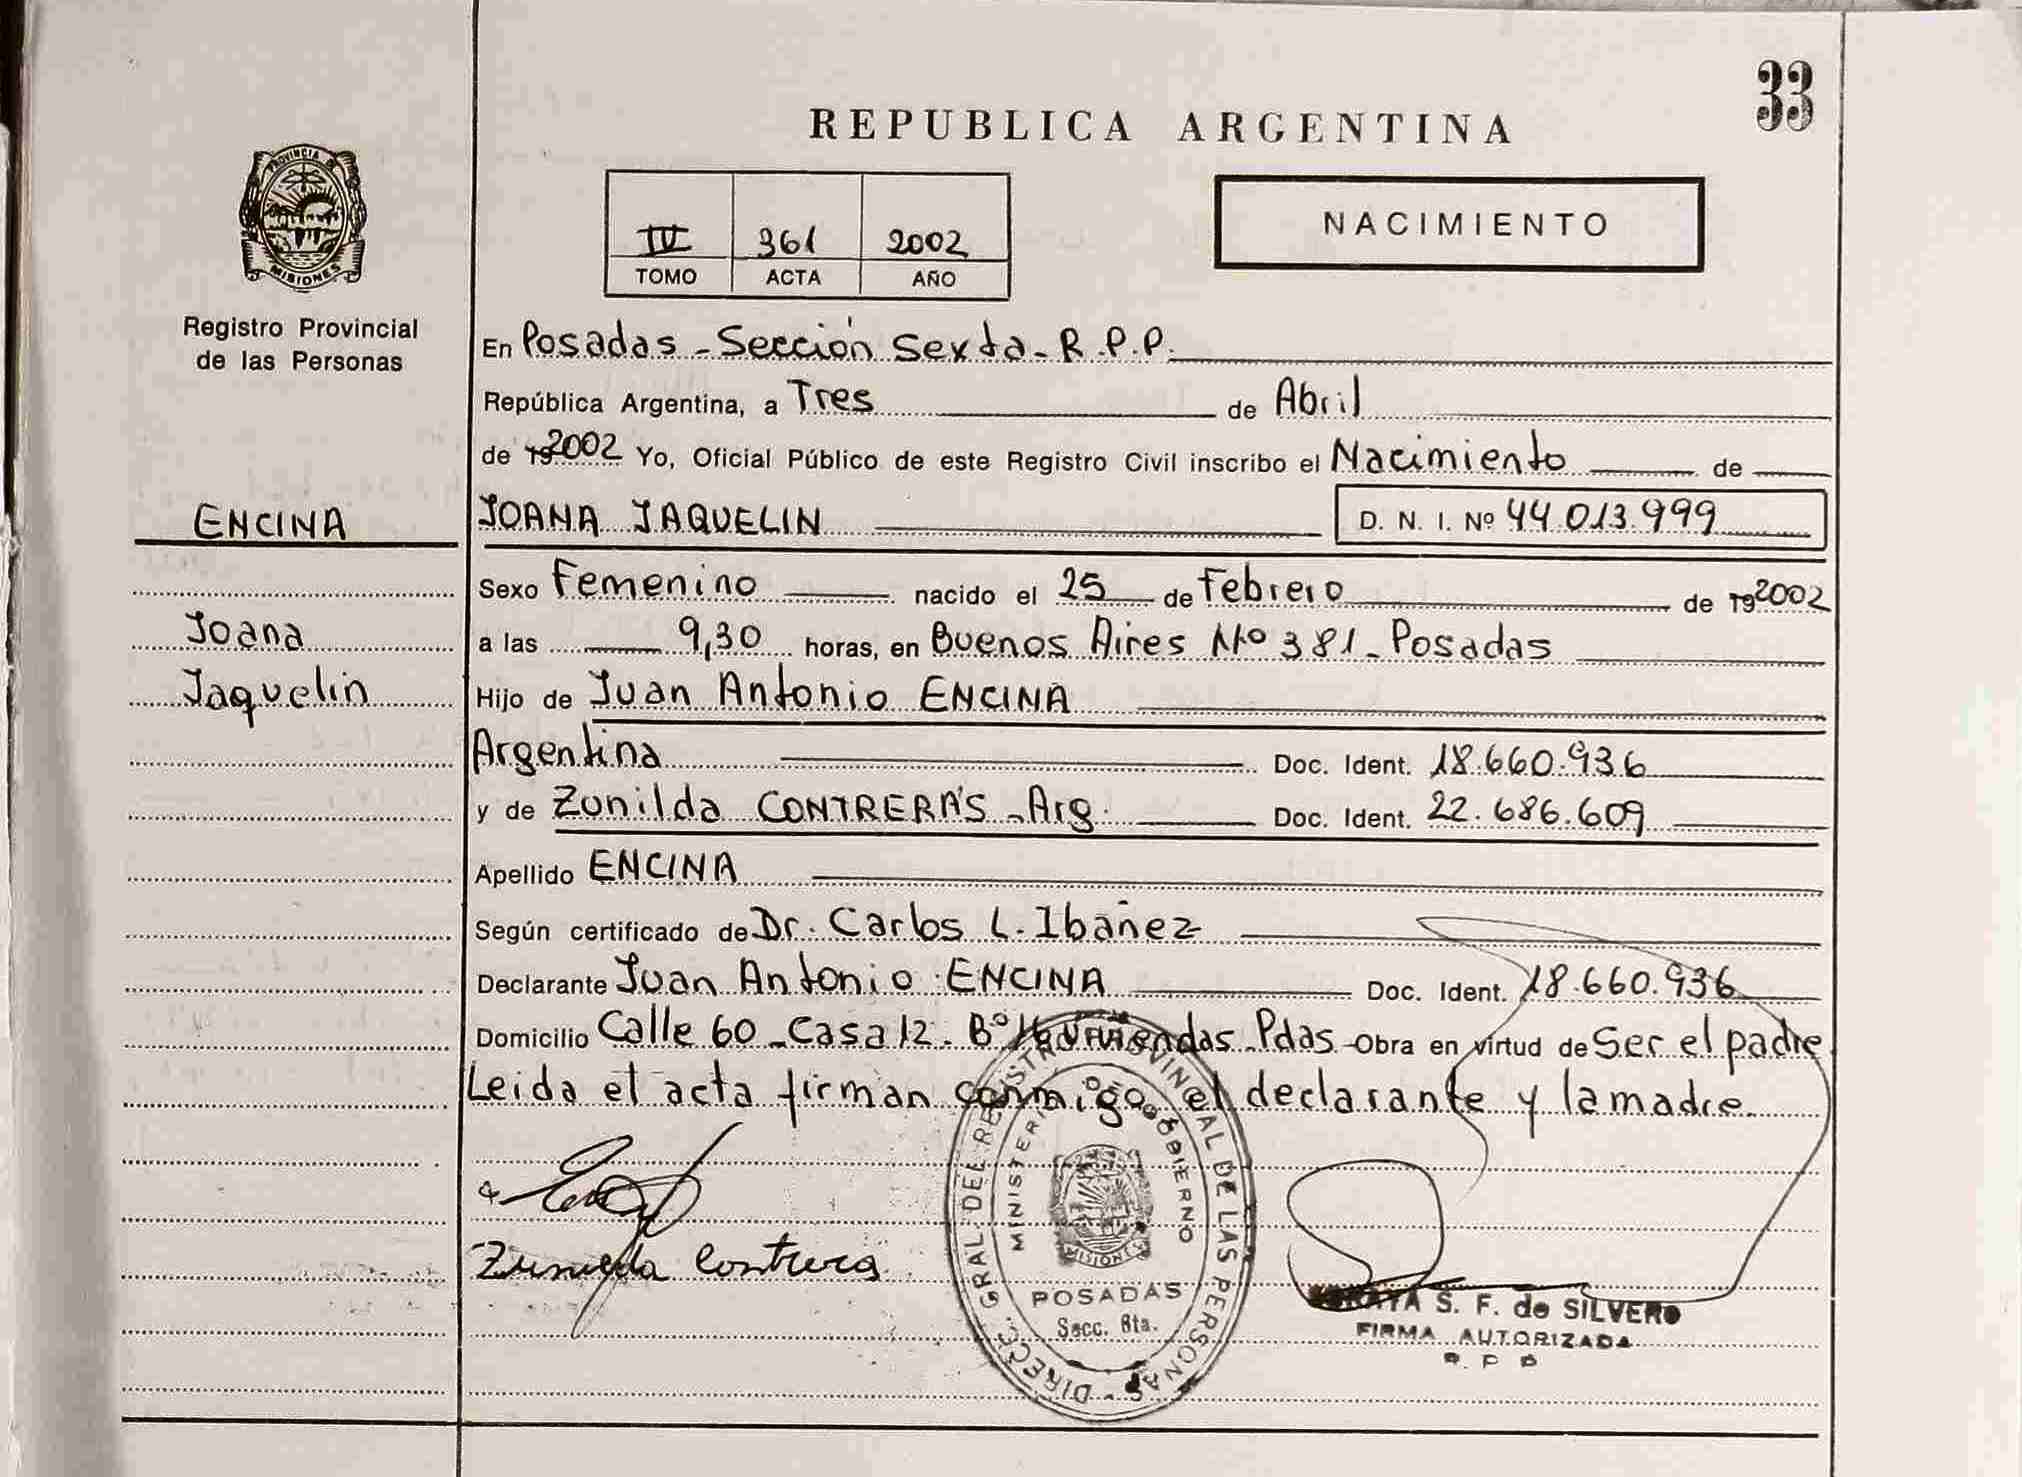 33
REPUBLICA ARGENTINA
PROVINCIA DE
MISIONES
Registro Provincial
de las Personas
NACIMIENTO
IV 361 2002
TOMO ACTA AÑO
En Posadas - Sección Sexta - R.P.P.
República Argentina, a Tres de Abril
de 192002 Yo, Oficial Público de este Registro Civil inscribo el Nacimiento de
ENCINA
JOANA JAQUELIN D. N. I. Nº 44.013.999
Sexo Femenino nacido el 25 de Febrero de 192002
Joana
a las 9,30 horas, en Buenos Aires Nº 381 - Posadas
Jaquelin
Hijo de Juan Antonio ENCINA
Argentina Doc. Ident. 18.660.936
y de Zunilda CONTRERAS - Arg. Doc. Ident. 22.686.609
Apellido ENCINA
Según certificado de Dr. Carlos L. Ibañez
Declarante Juan Antonio ENCINA Doc. Ident. 18.660.936
Domicilio Calle 60 - Casa 12 - Bº Viviendas - Pdas - Obra en virtud de Ser el padre
Leida el acta firman conmigo el declarante y la madre.
Contrera
DIRECC. GRAL. DEL REGISTRO PROVINCIAL DE LAS PERSONAS
MINISTERIO DE GOBIERNO
MISIONES
POSADAS
Secc. 6ta.
S. F. de SILVERO
FIRMA AUTORIZADA
R. P. P.